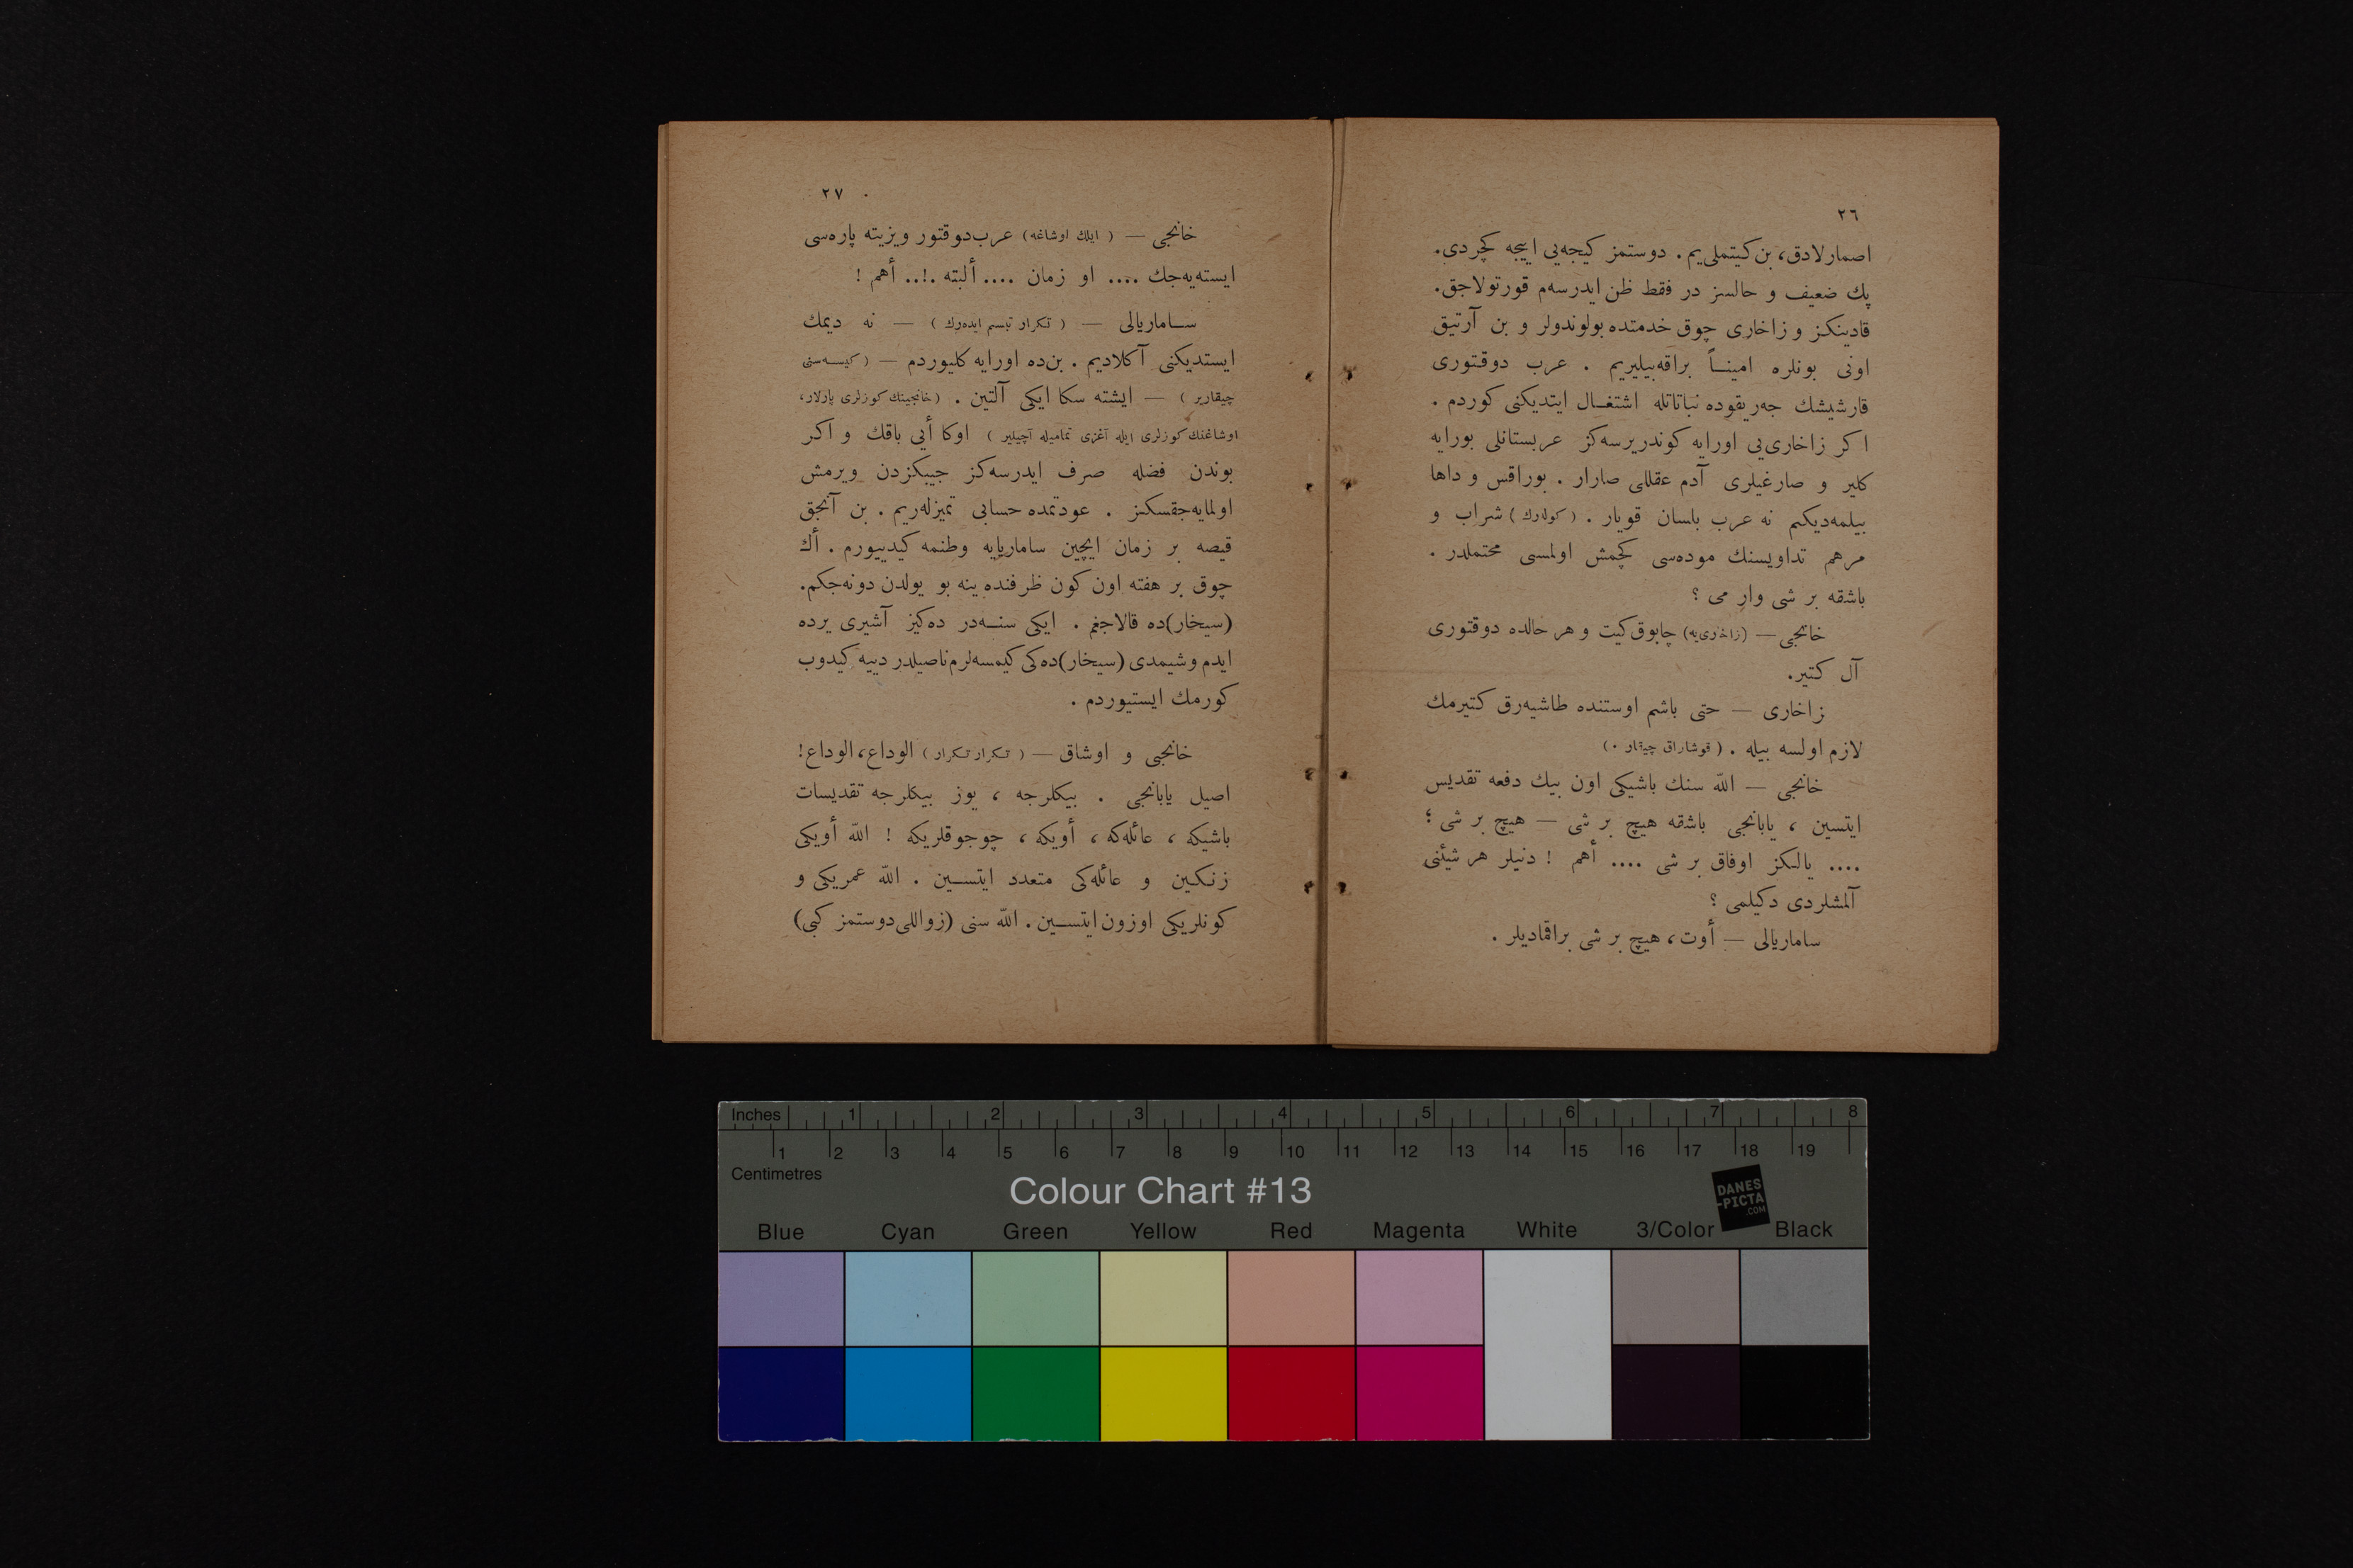 ٢٦
اصمارلادق، بن كيتملى‌يم. دوستمز كيجه‌يى اييجه كچردى.
پك ضعيف و حالسز در فقط ظن ايدرسه‌م قورتولاجق.
قادينكز و زاخارى چوق خدمتده بولوندولر و بن آرتيق
اونى بونلره اميناً براقه‌بيليريم . عرب دوقتورى
قارشيشك جه‌ريقوده نباتاتله اشتغال ايتديكنى كوردم .
اكر زاخارى‌يى اورايه كوندريرسه‌كز عربستانلى بورايه
كلير و صارغيلرى آدم عقللى صارار . بوراقس و داها
بيلمه‌ديكم نه عرب باسان قويار . (كوله‌رك) شراب و
مرهم تداويسنك موده‌سى كچمش اولمسى محتملدر .
باشقه بر شى وار مى ؟
خانجى — (زاخارى‌يه) چابوق كيت و هر حالده دوقتورى
آل كتير.
زاخارى — حتى باشم اوستنده طاشيه‌رق كتيرمك
لازم اولسه بيله . (قوشاراق چيقار .)
خانجى — الله سنك باشيكى اون بيك دفعه تقديس
ايتسين ، يابانجى باشقه هيچ بر شى — هيچ بر شى ؛
.... يالكز اوفاق بر شى .... أهم ! دنيلر هر شيئنى
آلمشلردى دكيلمى ؟
ساماريالى — أوت، هيچ بر شى براقماديلر .
٢٧
خانجى — (ايلك اوشاغه) عرب‌دوقتور ويزيته پاره‌سى
ايسته‌يه‌جك .... او زمان .... ألبته .!.. أهم !
ساماريالى — (تكرار تبسم ايده‌رك) — نه ديمك
ايستديكنى آكلاديم . بن‌ده اورايه كليوردم — (كيسه‌سنى
چيقارير) — ايشته سكا ايكى آلتين . (خانجينك كوزلرى پارلار،
اوشاغنك كوزلرى ايله آغزى تماميله آچيلير) اوكا أيى باقك و اكر
بوندن فضله صرف ايدرسه‌كز جيبكزدن ويرمش
اولمايه‌جقسكز . عودتمده حسابى تميزله‌ريم . بن آنجق
قيصه بر زمان ايچين ساماريايه وطنمه كيدييورم . أك
چوق بر هفته اون كون ظرفنده ينه بو يولدن دونه‌جكم.
(سيخار)ده قالاجغم . ايكى سنه‌در ده‌كيز آشيرى يرده
ايدم و شيمدى (سيخار)ده‌كى كيمسه‌لرم ناصيلدر دييه كيدوب
كورمك ايستيوردم .
خانجى و اوشاق — (تكرار تكرار) الوداع، الوداع!
اصيل يابانجى . بيكلرجه ، يوز بيكلرجه تقديسات
باشيكه ، عائله‌كه ، أويكه ، چوجوقلريكه ! الله أويكى
زنكين و عائله‌كى متعدد ايتسين . الله عمريكى و
كونلريكى اوزون ايتسين . الله سنى (زواللى دوستمز كبى)
Inches 1 2 3 4 5 6 7 8
1 2 3 4 5 6 7 8 9 10 11 12 13 14 15 16 17 18 19
Centimetres
Colour Chart #13
DANES
-PICTA
.COM
Blue Cyan Green Yellow Red Magenta White 3/Color Black